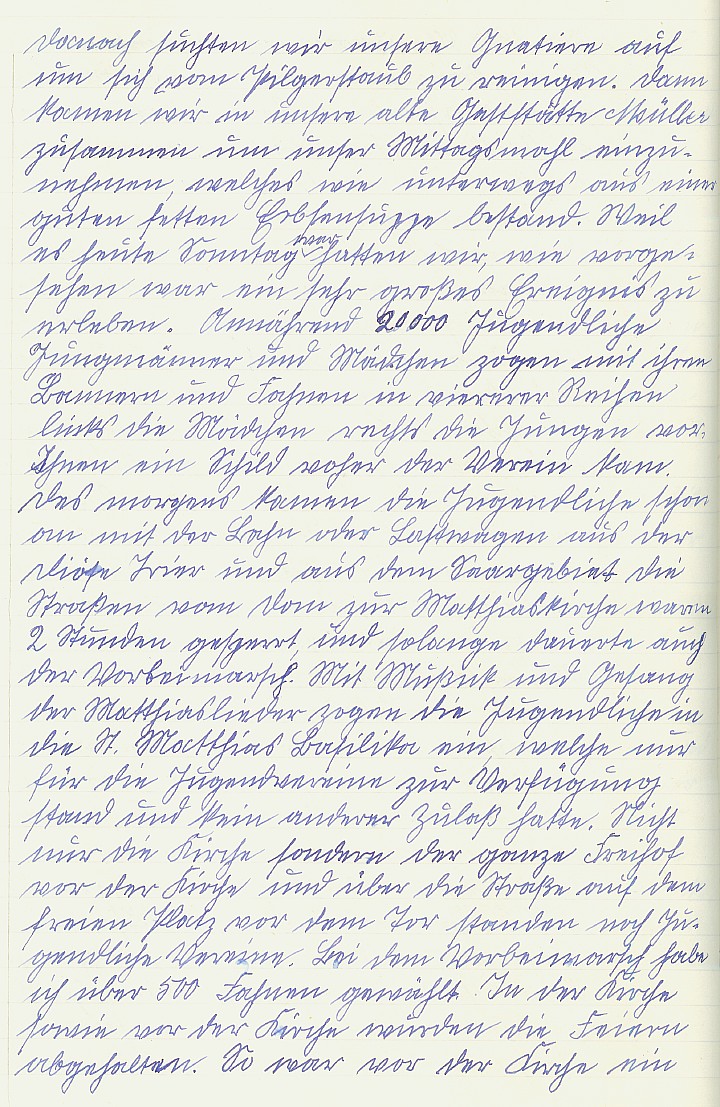 Danach suchten wir unsere Quatiere auf
um sich vom Pilgerstaub zu reinigen. Dann
kamen wir in unsere alte Gaststätte Müller
zusammen um unser Mittagsmahl einzu-
nehmen, welches wie unterwegs aus einer
guten fetten Erbsensuppe bestand. Weil
es heute Sonntag war hatten wir, wie vorge-
sehen war ein sehr großes Ereignis zu
erleben. Annährend 20000 Jugendliche
Jungmänner und Mädchen zogen mit ihren
Bannern und Fahnen in viererer Reihen
links die Mädchen rechts die Jungen vor-
Ihnen ein Schild woher der Verein kam.
Des morgens kamen die Jugendliche schon
an mit der Bahn oder Lastwagen aus der
Diöse Trier und aus dem Saargebiet die
Straßen vom Dom zur Matthiaskirche waren
2 Stunden gesperrt, und solange dauerte auch
der Vorbeimarsch. Mit Mußik und Gesang
der Matthiaslieder zogen die Jugendliche in
die St. Matthias Basilika ein, welche nur
für die Jugendvereine zur Verfügung
stand und kein anderer Zulaß hatte. Nicht
nur die Kirche sondern der ganze Freihof
vor der Kirche und über die Straße auf dem
freien Platz vor dem Tor standen noch Ju-
gendliche Vereine. Bei dem Vorbeimarsch habe
ich über 500 Fahnen gewählt. In der Kirche
sowie vor der Kirche wurden die Feiern
abgehalten. So war vor der Kirche ein